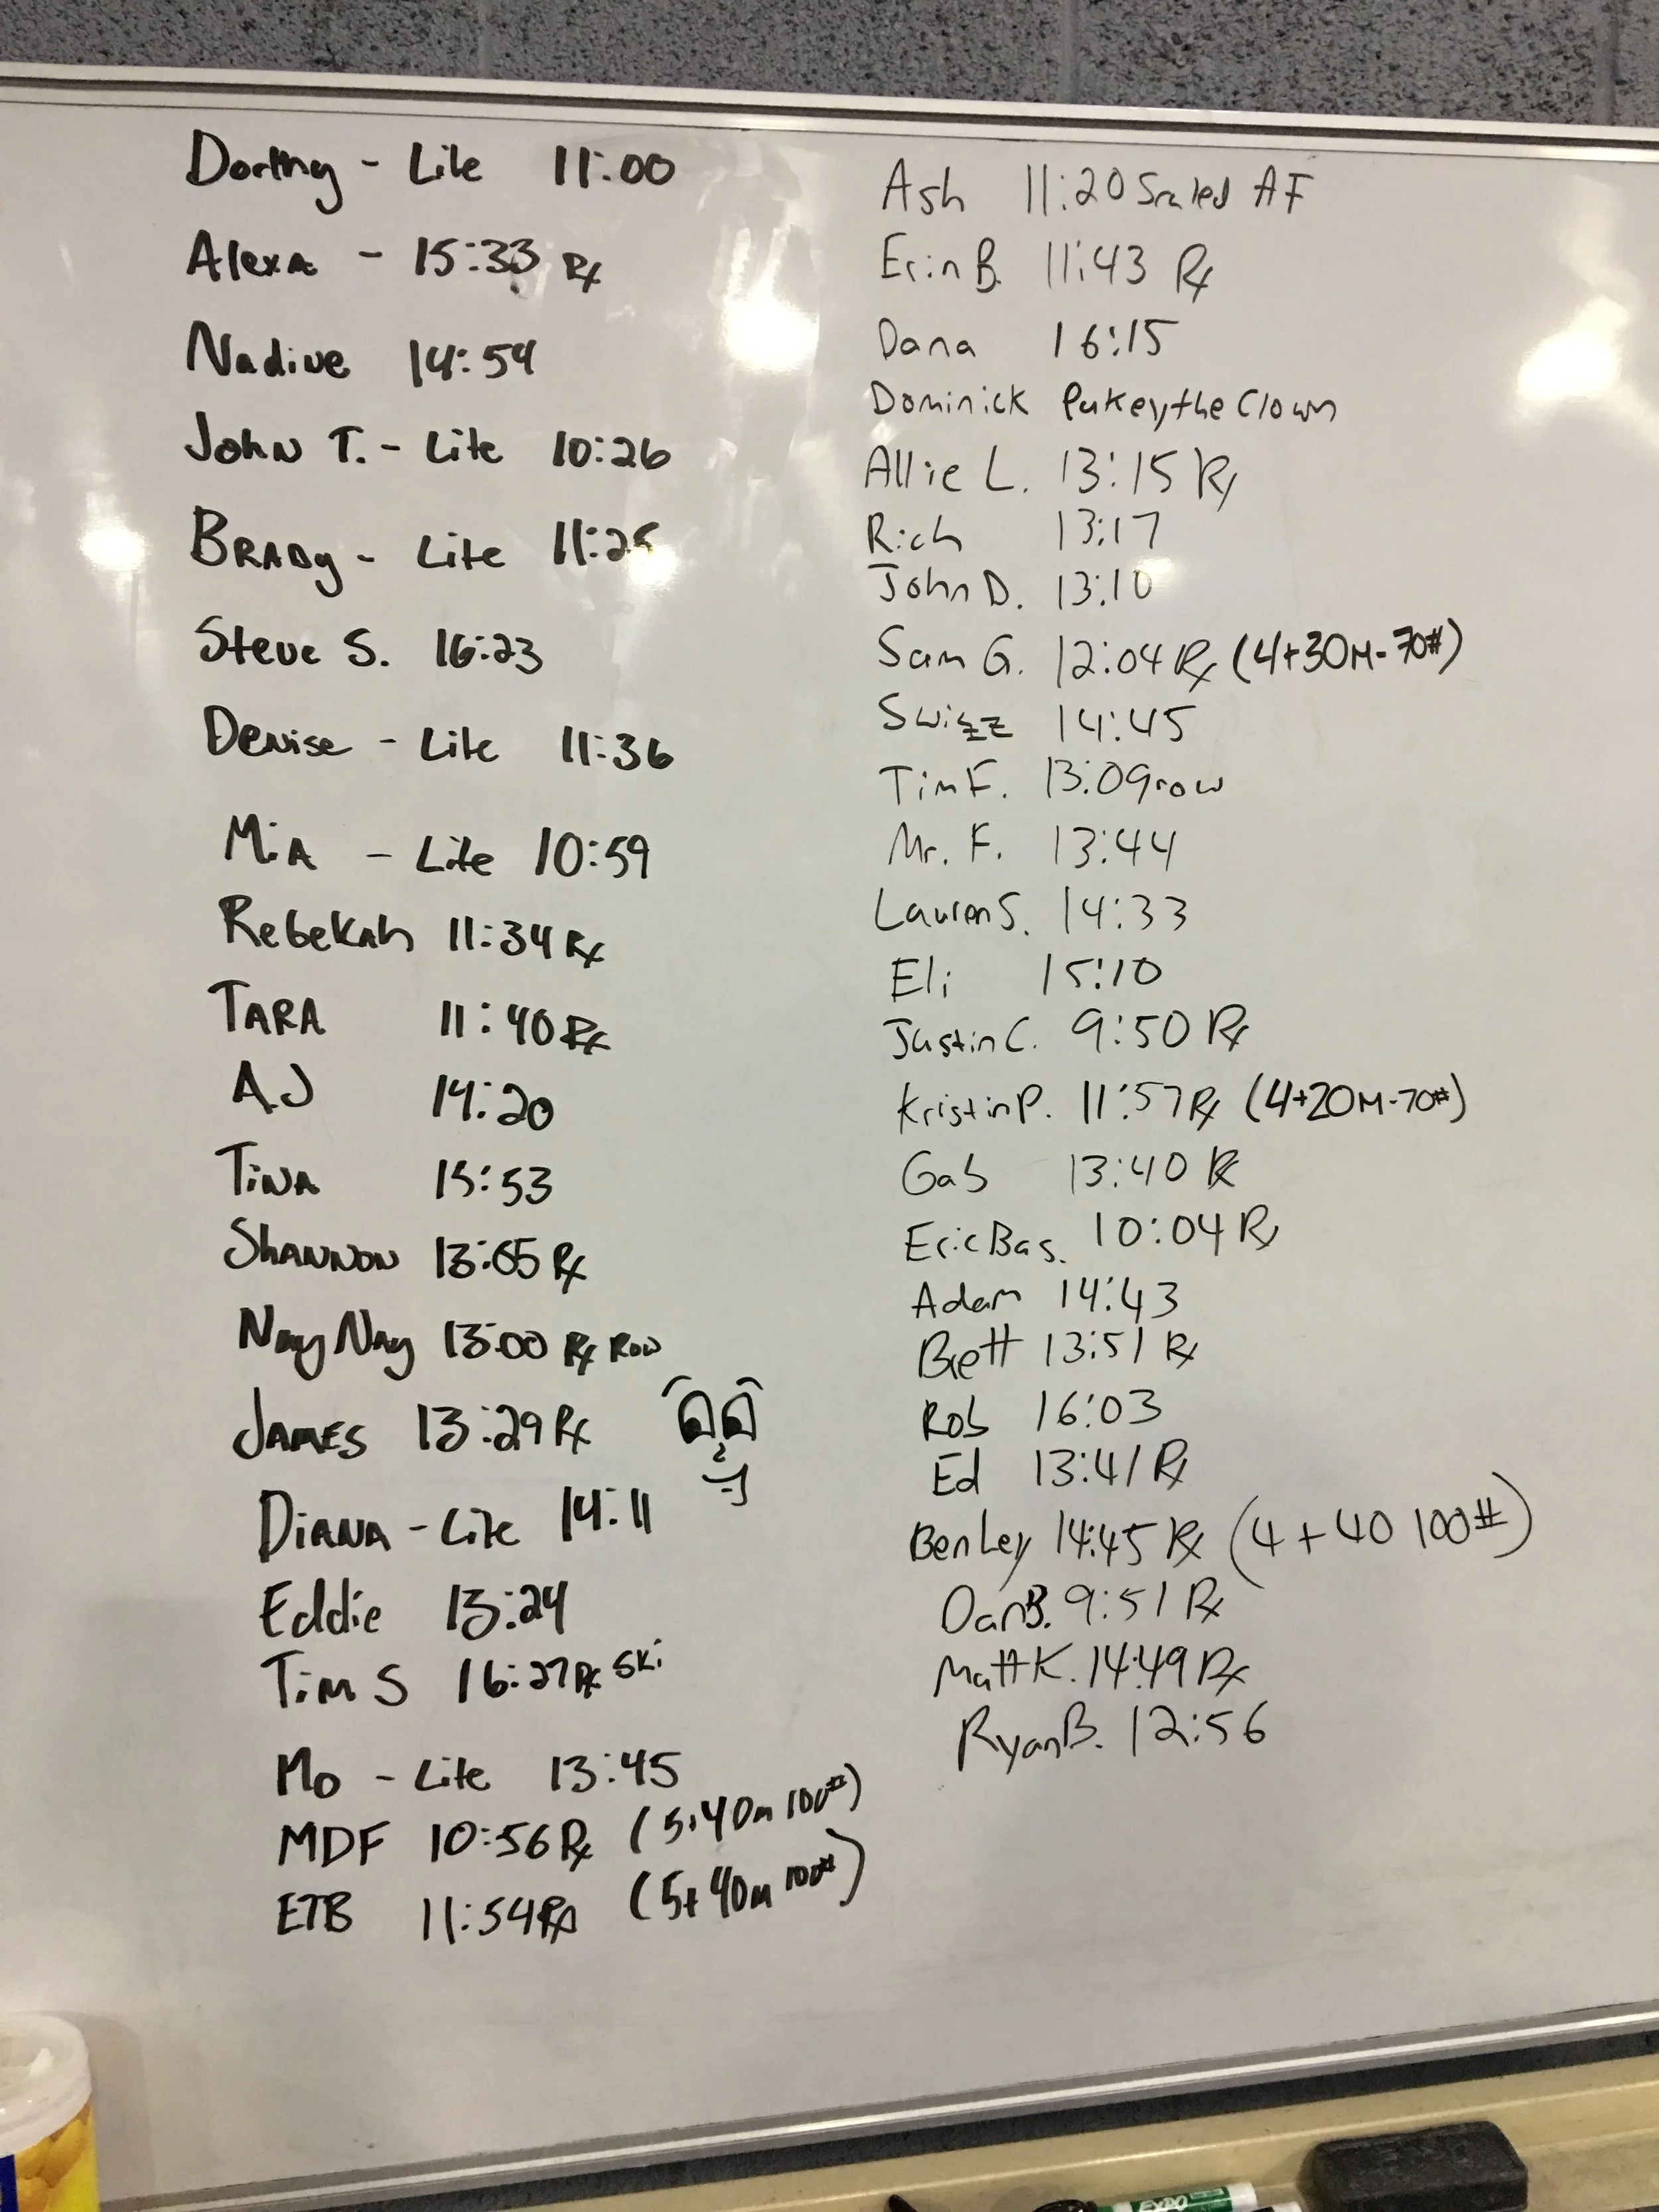 Dorthy - Lite 11:00
Alexa - 15:33 Rx
Nadine 14:54
John T. - Lite 10:26
BRADy - Lite 11:25
Steve S. 16:23
Denise - Lite 11:36
Mia - Lite 10:59
Rebekah 11:34 Rx
TARA 11:40 Rx
AJ 14:20
Tina 15:53
Shannon 13:05 Rx
Nay Nay 13:00 Rx Row
JAMES 13:29 Rx
Diana - Lite 14:11
Eddie 13:24
Tim S 16:27 Rx Ski
Mo - Lite 13:45
MDF 10:56 Rx (5+40m 100#)
ETB 11:54 Rx (5+40m 100#)
Ash 11:20 Scaled AF
Erin B. 11:43 Rx
Dana 16:15
Dominick Pukey the Clown
Allie L. 13:15 Rx
Rich 13:17
John D. 13:10
Sam G. 12:04 Rx (4+30M-70#)
Swizz 14:45
Tim F. 13:09 row
Mr. F. 13:44
Lauren S. 14:33
Eli 15:10
Justin C. 9:50 Rx
Kristin P. 11:57 Rx (4+20M-70#)
Gab 13:40 Rx
Eric Bas. 10:04 Rx
Adam 14:43
Brett 13:51 Rx
Rob 16:03
Ed 13:41 Rx
Ben Ley 14:45 Rx (4+40 100#)
Dan B. 9:51 Rx
Matt K. 14:49 Rx
Ryan B. 12:56
EXPO